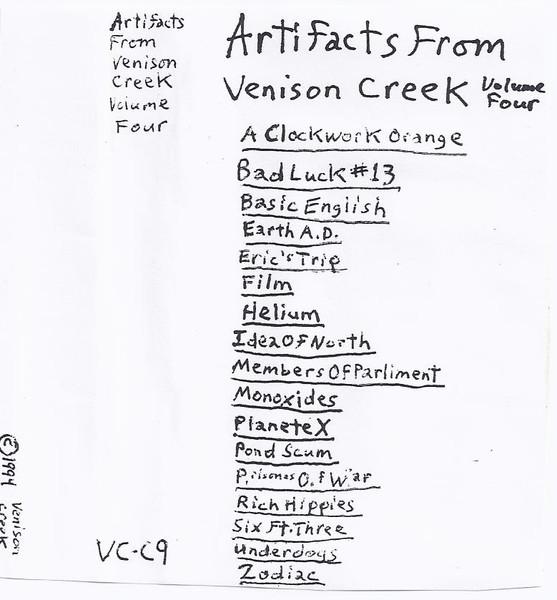 Artifacts
From
Venison
Creek
Volume
Four
Artifacts From
Venison Creek Volume
Four
A Clockwork Orange
Bad Luck #13
Basic English
Earth A.D.
Eric's Trip
Film
Helium
Idea Of North
Members Of Parliment
Monoxides
Planete X
Pond Scum
Prisones O.f War
Rich Hippies
Six Ft. Three
Underdogs
Zodiac
VC-C9
©1994 Venison
Creek